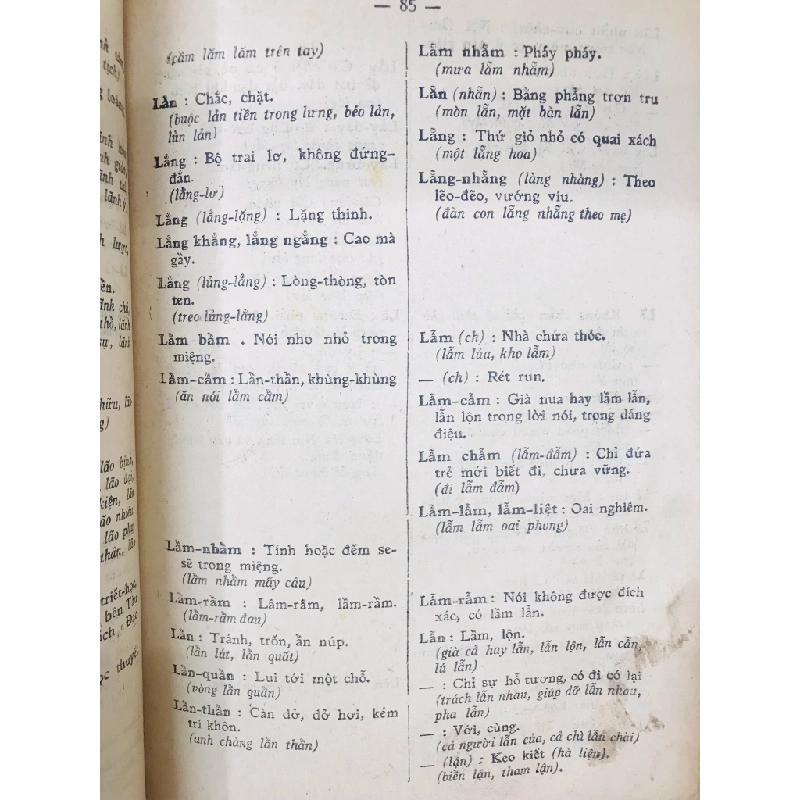 — 85 —
(cầm lăm lăm trên tay)
Lẳn : Chắc, chặt.
(buộc lẳn tiền trong lưng, béo lẳn,
lẳn lẳn)
Lẳng : Bộ trai lơ, không đứng-
đắn.
(lẳng-lơ)
Lẳng (lẳng-lặng) : Lặng thinh.
Lẳng khẳng, lẳng ngẳng : Cao mà
gầy.
Lẳng (lủng-lẳng) : Lòng-thòng, tòn
ten.
(treo lủng-lẳng)
Lẩm bẩm . Nói nho nhỏ trong
miệng.
Lẩm-cẩm : Lẩn-thẩn, khùng-khùng
(ăn nói lẩm cẩm)
Lẩm-nhẩm : Tính hoặc đếm se-
sẽ trong miệng.
(lẩm nhẩm mấy câu)
Lẩm-rẩm : Lâm-râm, lầm-rầm.
(lẩm-rẩm đau)
Lẩn : Tránh, trốn, ẩn núp.
(lẩn lút, lẩn quất)
Lẩn-quẩn : Lui tới một chỗ.
(vòng lẩn quẩn)
Lẩn-thẩn : Càn dở, dở hơi, kém
trí khôn.
(anh chàng lẩn thẩn)
Lẵm nhẵm : Pháy pháy.
(mưa lẵm nhẵm)
Lẵn (nhẵn) : Bằng phẳng trơn tru
(mòn lẵn, mặt bàn lẵn)
Lẵng : Thứ giỏ nhỏ có quai xách
(một lẵng hoa)
Lẵng-nhẵng (lùng nhùng) : Theo
lẽo-đẽo, vướng víu.
(đàn con lẵng nhẵng theo mẹ)
Lẫm (ch) : Nhà chứa thóc.
(lẫm lúa, kho lẫm)
— (ch) : Rét run.
Lẫm-cẫm : Già nua hay lầm lẫn,
lẫn lộn trong lời nói, trong dáng
điệu.
Lẫm chẫm (lẫm-đẫm) : Chỉ đứa
trẻ mới biết đi, chưa vững.
(đi lẫm đẫm)
Lẫm-lẫm, lẫm-liệt : Oai nghiêm.
(lẫm lẫm oai phong)
Lẫm-rẫm : Nói không được đích
xác, có lầm lẫn.
Lẫn : Lầm, lộn.
(già cả hay lẫn, lẫn lộn, lẫn cẫn,
lú lẫn)
— : Chỉ sự hỗ tương, có đi có lại
(trách lẫn nhau, giúp đỡ lẫn nhau,
pha lẫn)
— : Với, cùng.
(cả người lẫn của, cả chì lẫn chài)
— (lận) : Keo kiết (hà tiện).
(biển lận, tham lận).